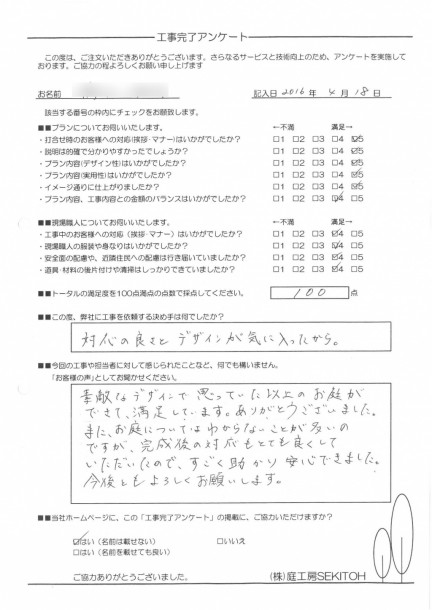 工事完了アンケート
この度は、ご注文いただきありがとうございます。さらなるサービスと技術向上のため、アンケートを実施して
おります。ご協力の程よろしくお願い申し上げます
お名前 記入日 2016 年 4 月 18 日
該当する番号の枠内にチェックをお願致します。
■■プランについてお伺いいたします。 ←不満 満足→
・打合せ時のお客様への対応(挨拶・マナー)はいかがでしたか? □1 □2 □3 □4 ☑5
・説明は的確で分かりやすかったでしょうか? □1 □2 □3 □4 ☑5
・プラン内容(デザイン性)はいかがでしたか? □1 □2 □3 □4 ☑5
・プラン内容(実用性)はいかがでしたか? □1 □2 □3 □4 ☑5
・イメージ通りに仕上がりましたか? □1 □2 □3 □4 ☑5
・プラン内容、工事内容との金額のバランスはいかがでしたか? □1 □2 □3 ☑4 □5
■■現場職人についてお伺いいたします。 ←不満 満足→
・工事中のお客様への対応(挨拶・マナー)はいかがでしたか? □1 □2 □3 ☑4 □5
・現場職人の服装や身なりはいかがでしたか? □1 □2 □3 ☑4 □5
・安全面の配慮や、近隣住民への配慮は行き届いていましたか? □1 □2 □3 ☑4 □5
・道具・材料の後片付けや清掃はしっかりできていましたか? □1 □2 □3 ☑4 □5
■■トータルの満足度を100点満点の点数で採点してください。 100 点
■■この度、弊社に工事を依頼する決め手は何でしたか?
対応の良さと デザインが気に入ったから。
■■今回の工事や担当者に対して感じられたことなど、何でも構いません。
「お客様の声」としてお聞かせください。
素敵なデザインで思っていた以上のお庭が
できて、満足しています。ありがとうございました。
また、お庭についてはわからないことが多いの
ですが、完成後の対応もとても良くして
いただいたので、すごく助かり安心できました。
今後ともよろしくお願いします。
■■当社ホームページに、この「工事完了アンケート」の掲載に、ご協力いただけますか?
☑はい(名前は載せない) □いいえ
□はい(名前を載せても良い)
ご協力ありがとうございました。 (株)庭工房SEKITOH